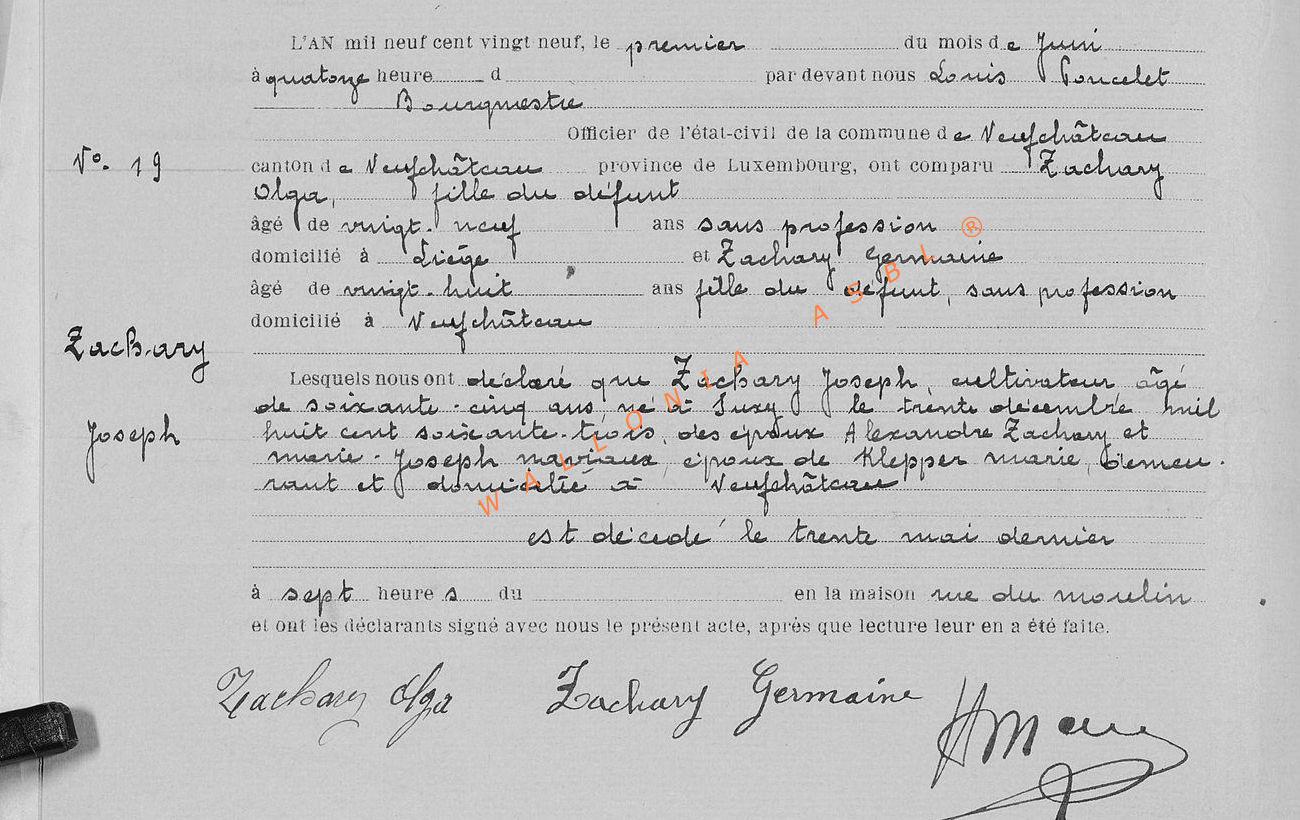 L'AN mil neuf cent vingt neuf, le premier du mois de Juin
à quatorze heure d par devant nous Louis Poncelet
Bourgmestre
Officier de l'état-civil de la commune de Neufchâteau
N°. 19
canton de Neufchâteau province de Luxembourg, ont comparu Zachary
Olga, fille du défunt
âgé de vingt-neuf ans sans profession
domicilié à Liége et Zachary Germaine
âgé de vingt-huit ans fille du défunt, sans profession
domicilié à Neufchâteau
Zachary
Joseph
Lesquels nous ont déclaré que Zachary Joseph, cultivateur âgé
de soixante-cinq ans, né à Suxy le trente décembre mil
huit cent soixante-trois, des époux Alexandre Zachary et
marie-Joseph naviaux, époux de Klepper marie, demeu-
rant et domicilié à Neufchâteau
est décédé le trente mai dernier
à sept heures du en la maison rue du moulin
et ont les déclarants signé avec nous le présent acte, après que lecture leur en a été faite.
Zachary Olga Zachary Germaine
WALLONIA ASBL ®